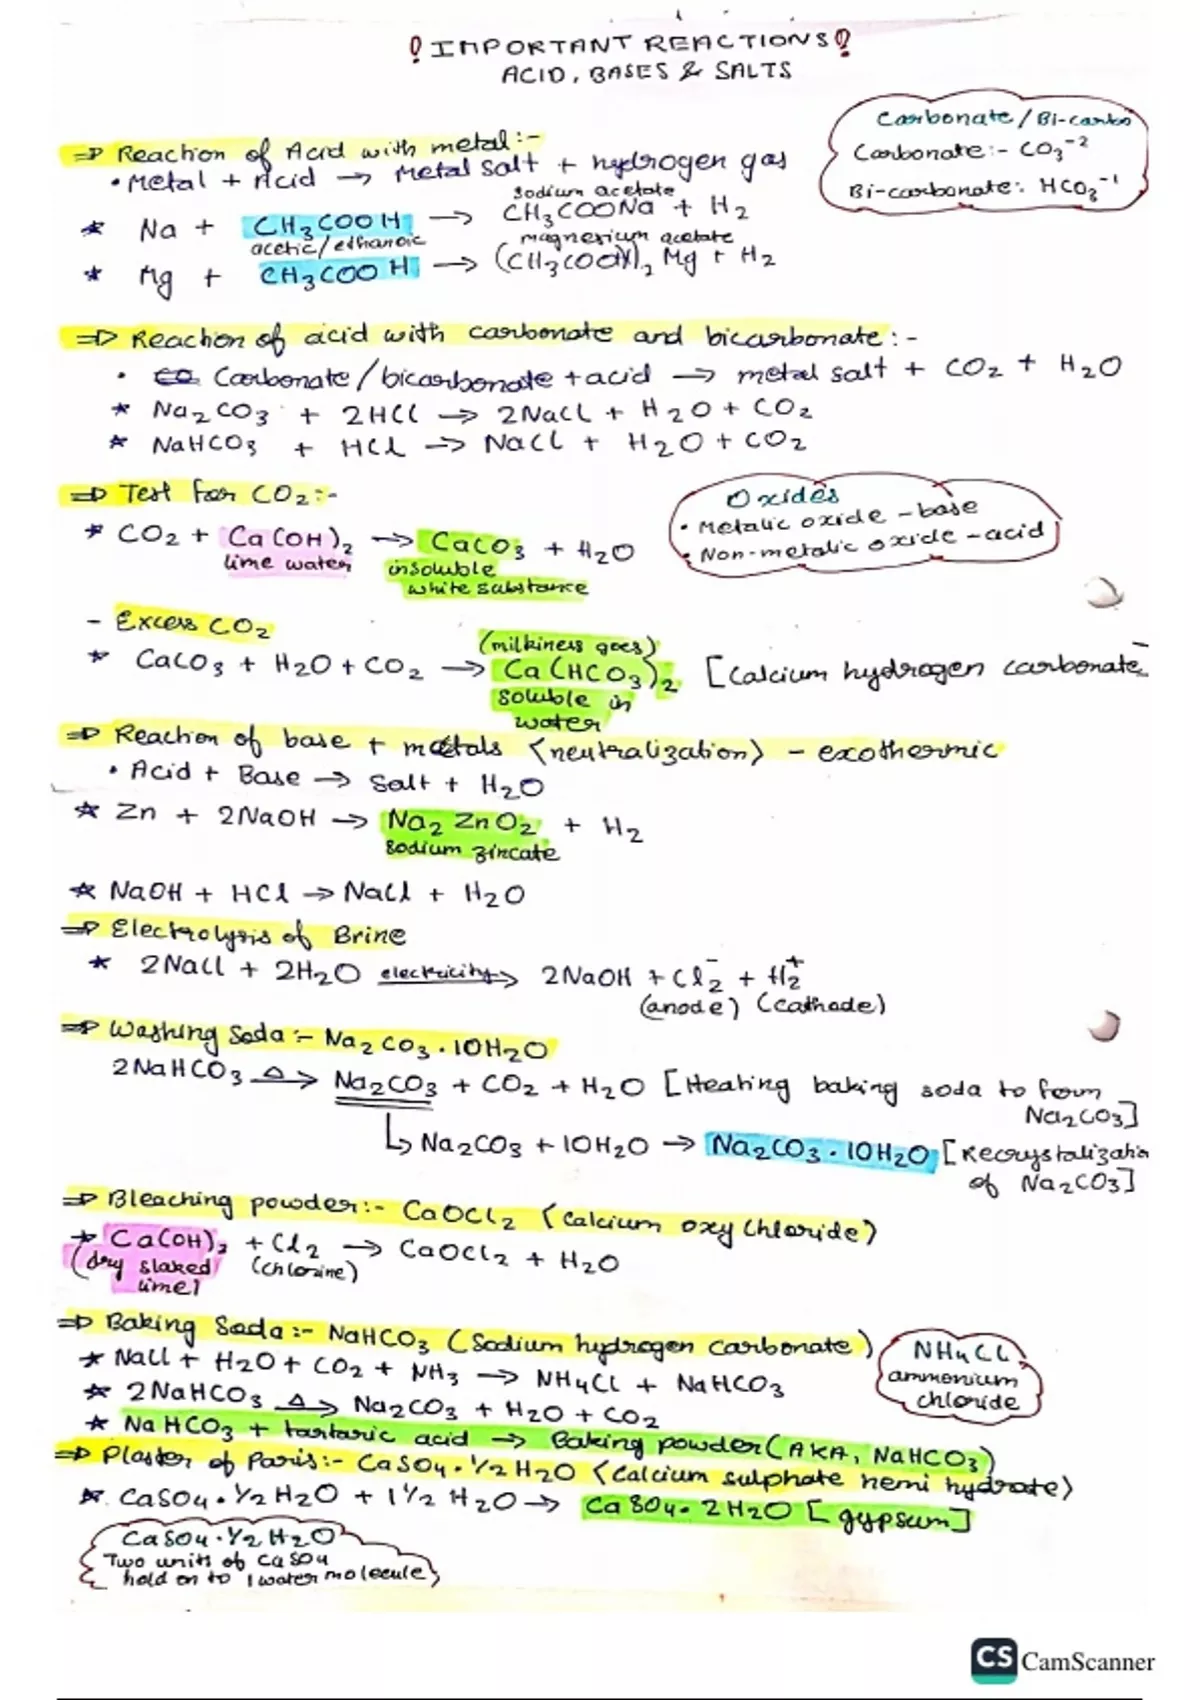 ! IMPORTANT REACTIONS !
ACID, BASES & SALTS
Carbonate / Bi-carbo
Carbonate:- CO₃⁻²
Bi-carbonate: HCO₃⁻¹
⇒ Reaction of Acid with metal:-
• Metal + Acid → Metal salt + hydrogen gas
sodium acetate
* Na + CH₃COOH → CH₃COONa + H₂
acetic/ethanoic
magnesium acetate
* Mg + CH₃COOH → (CH₃COO)₂ Mg + H₂
⇒ Reaction of acid with carbonate and bicarbonate:-
• Carbonate/bicarbonate + acid → metal salt + CO₂ + H₂O
* Na₂CO₃ + 2HCl → 2NaCl + H₂O + CO₂
* NaHCO₃ + HCl → NaCl + H₂O + CO₂
⇒ Test for CO₂:-
* CO₂ + Ca(OH)₂ → CaCO₃ + H₂O
lime water insoluble
white substance
Oxides
• Metalic oxide - base
• Non-metalic oxide - acid
- Excess CO₂
(milkiness goes)
* CaCO₃ + H₂O + CO₂ → Ca(HCO₃)₂ [Calcium hydrogen carbonate
soluble in
water
⇒ Reaction of base + metals (neutralization) - exothermic
• Acid + Base → Salt + H₂O
* Zn + 2NaOH → Na₂ZnO₂ + H₂
sodium zincate
* NaOH + HCl → NaCl + H₂O
⇒ Electrolysis of Brine
* 2NaCl + 2H₂O electricity→ 2NaOH + Cl₂⁻ + H₂⁺
(anode) (cathode)
⇒ Washing Soda:- Na₂CO₃.10H₂O
2NaHCO₃ △→ Na₂CO₃ + CO₂ + H₂O [Heating baking soda to form
Na₂CO₃]
↳ Na₂CO₃ + 10H₂O → Na₂CO₃.10H₂O [Recrystalizatio
of Na₂CO₃]
⇒ Bleaching powder:- CaOCl₂ (Calcium oxy Chloride)
* Ca(OH)₂ + Cl₂ → CaOCl₂ + H₂O
(dry slaked (chlorine)
lime)
⇒ Baking Soda:- NaHCO₃ (Sodium hydrogen carbonate)
* NaCl + H₂O + CO₂ + NH₃ → NH₄Cl + NaHCO₃
* 2NaHCO₃ △→ Na₂CO₃ + H₂O + CO₂
* NaHCO₃ + tartaric acid → Baking powder (AKA, NaHCO₃)
NH₄Cl
ammonium
chloride
⇒ Plaster of Paris:- CaSO₄.½H₂O (Calcium sulphate hemi hydrate)
* CaSO₄.½H₂O + 1½ H₂O → CaSO₄.2H₂O [gypsum]
CaSO₄.½H₂O
Two units of CaSO₄
hold on to 1 water molecule
CS CamScanner